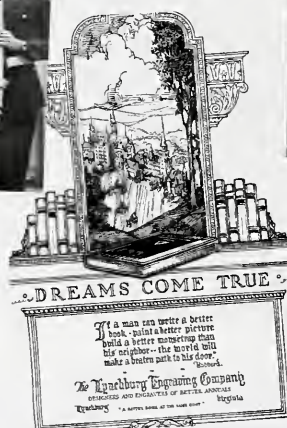 DREAMS COME TRUE
If a man can write a better
book - paint a better picture
build a better mousetrap than
his neighbor -- the world will
make a beaten path to his door."
Hubbard.
The Lynchburg Engraving Company
DESIGNERS AND ENGRAVERS OF BETTER ANNUALS
Lynchburg "A BETTER BOOK AT THE SAME COST" Virginia